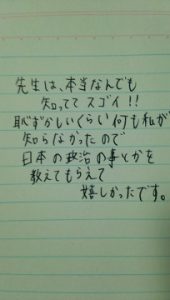 先生は、本当なんでも
知ってて スゴイ!!
恥ずかしいくらい何も私が
知らなかったので
日本の政治の事とかを
教えてもらえて
嬉しかったです。